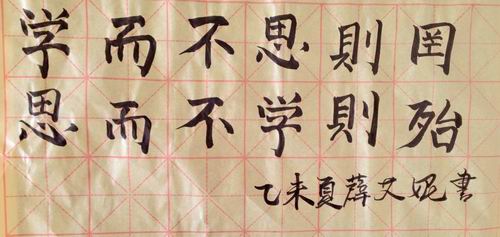 学而不思則罔
思而不学則殆
乙未夏薛艾妮書